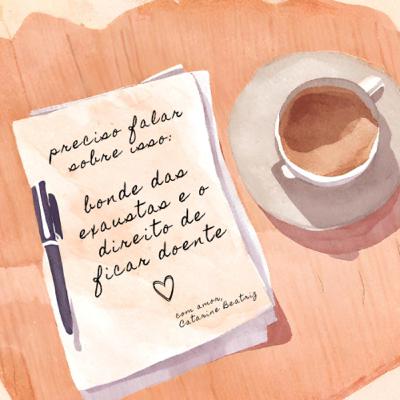 preciso falar
sobre isso:
bonde das
exaustas e o
direito de
ficar doente
com amor,
Catarine Beatriz